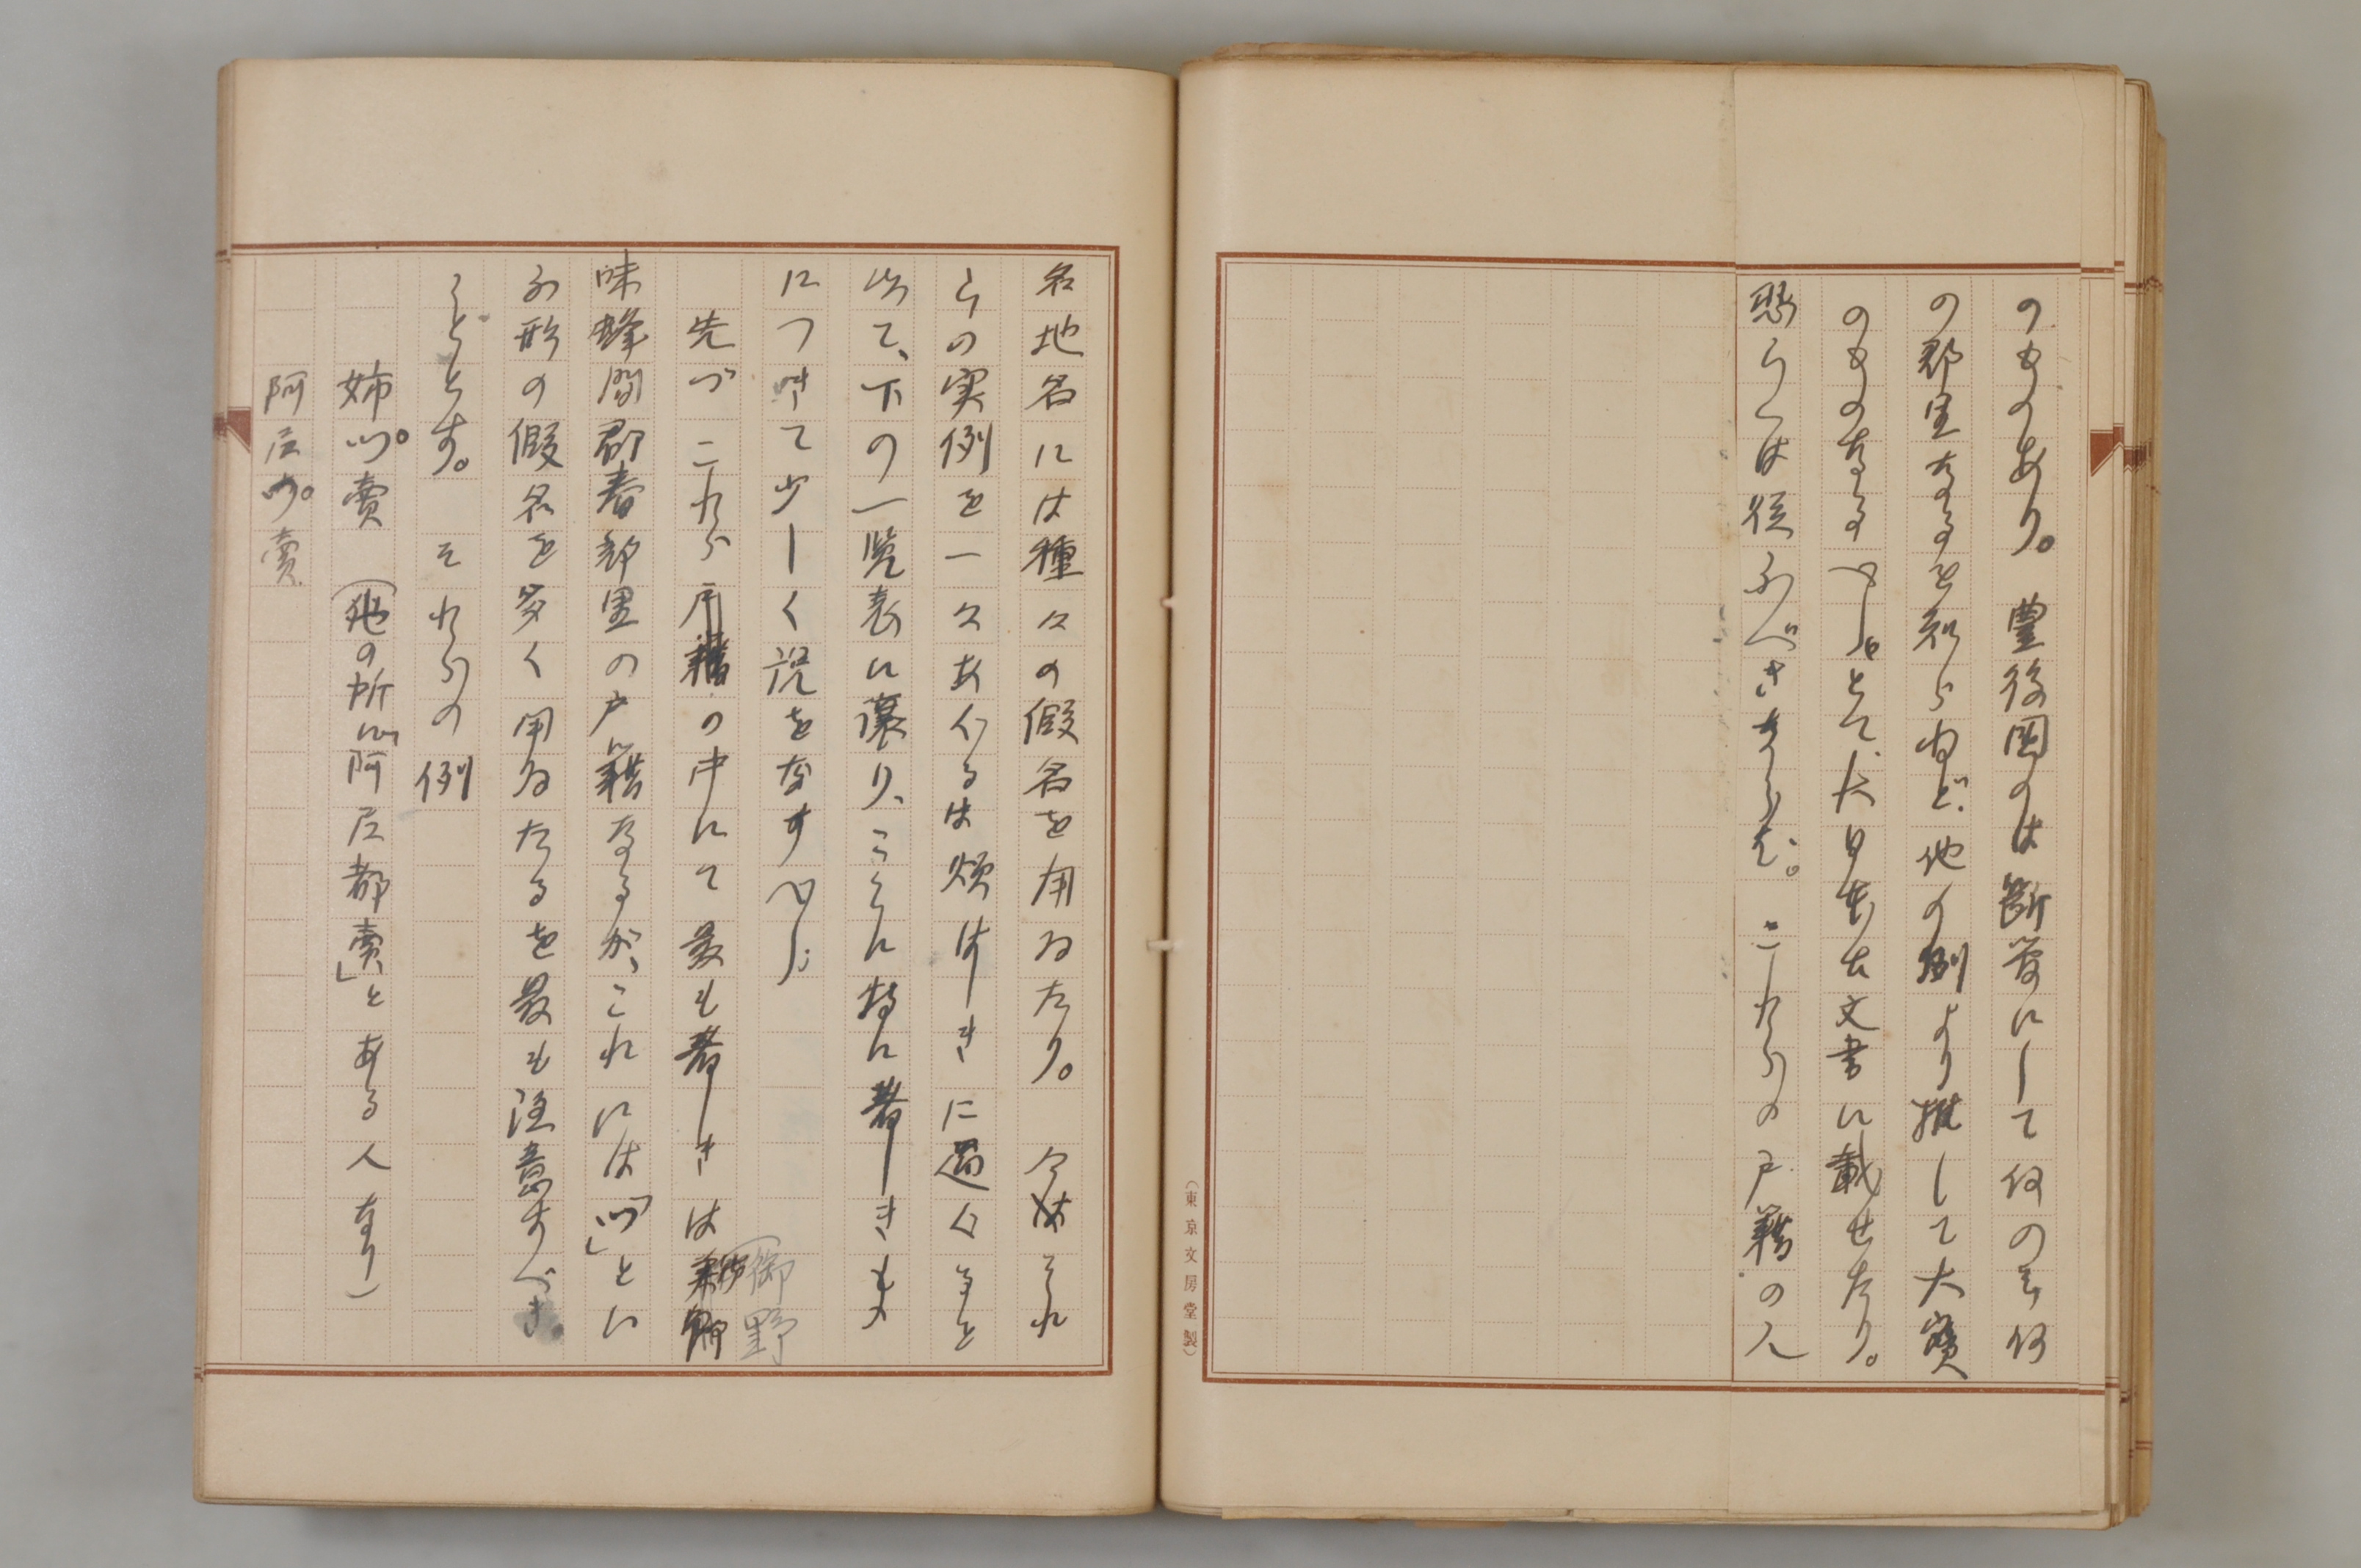 のものあり。豊後国のは断簡にして何の郡何
の郡里なるを知らねど、他の例より推して大寶
のものなるべし。とて、大日本古文書に載せたり。
恐らくは従ふべきならむ。これらの戸籍の人
(東京文房堂製)
名地名には種々の假名を用ゐたり。今それ
らの実例を一々あぐるは煩はしきに過ぐると
以て、下の一覧表に譲り、こゝに特に著しきもの
につきて少しく説をなすべし。
先づこれら戸籍の中にて最も著しきは御野
味蜂間郡春部里の戸籍なるが、これには「ツ」とい
ふ形の假名を多く用ゐたるを最も注意すべき
ことゝす。それらの例
姉ツ賣(他の所に「阿尼都賣」とある人なり)
阿尼ツ賣